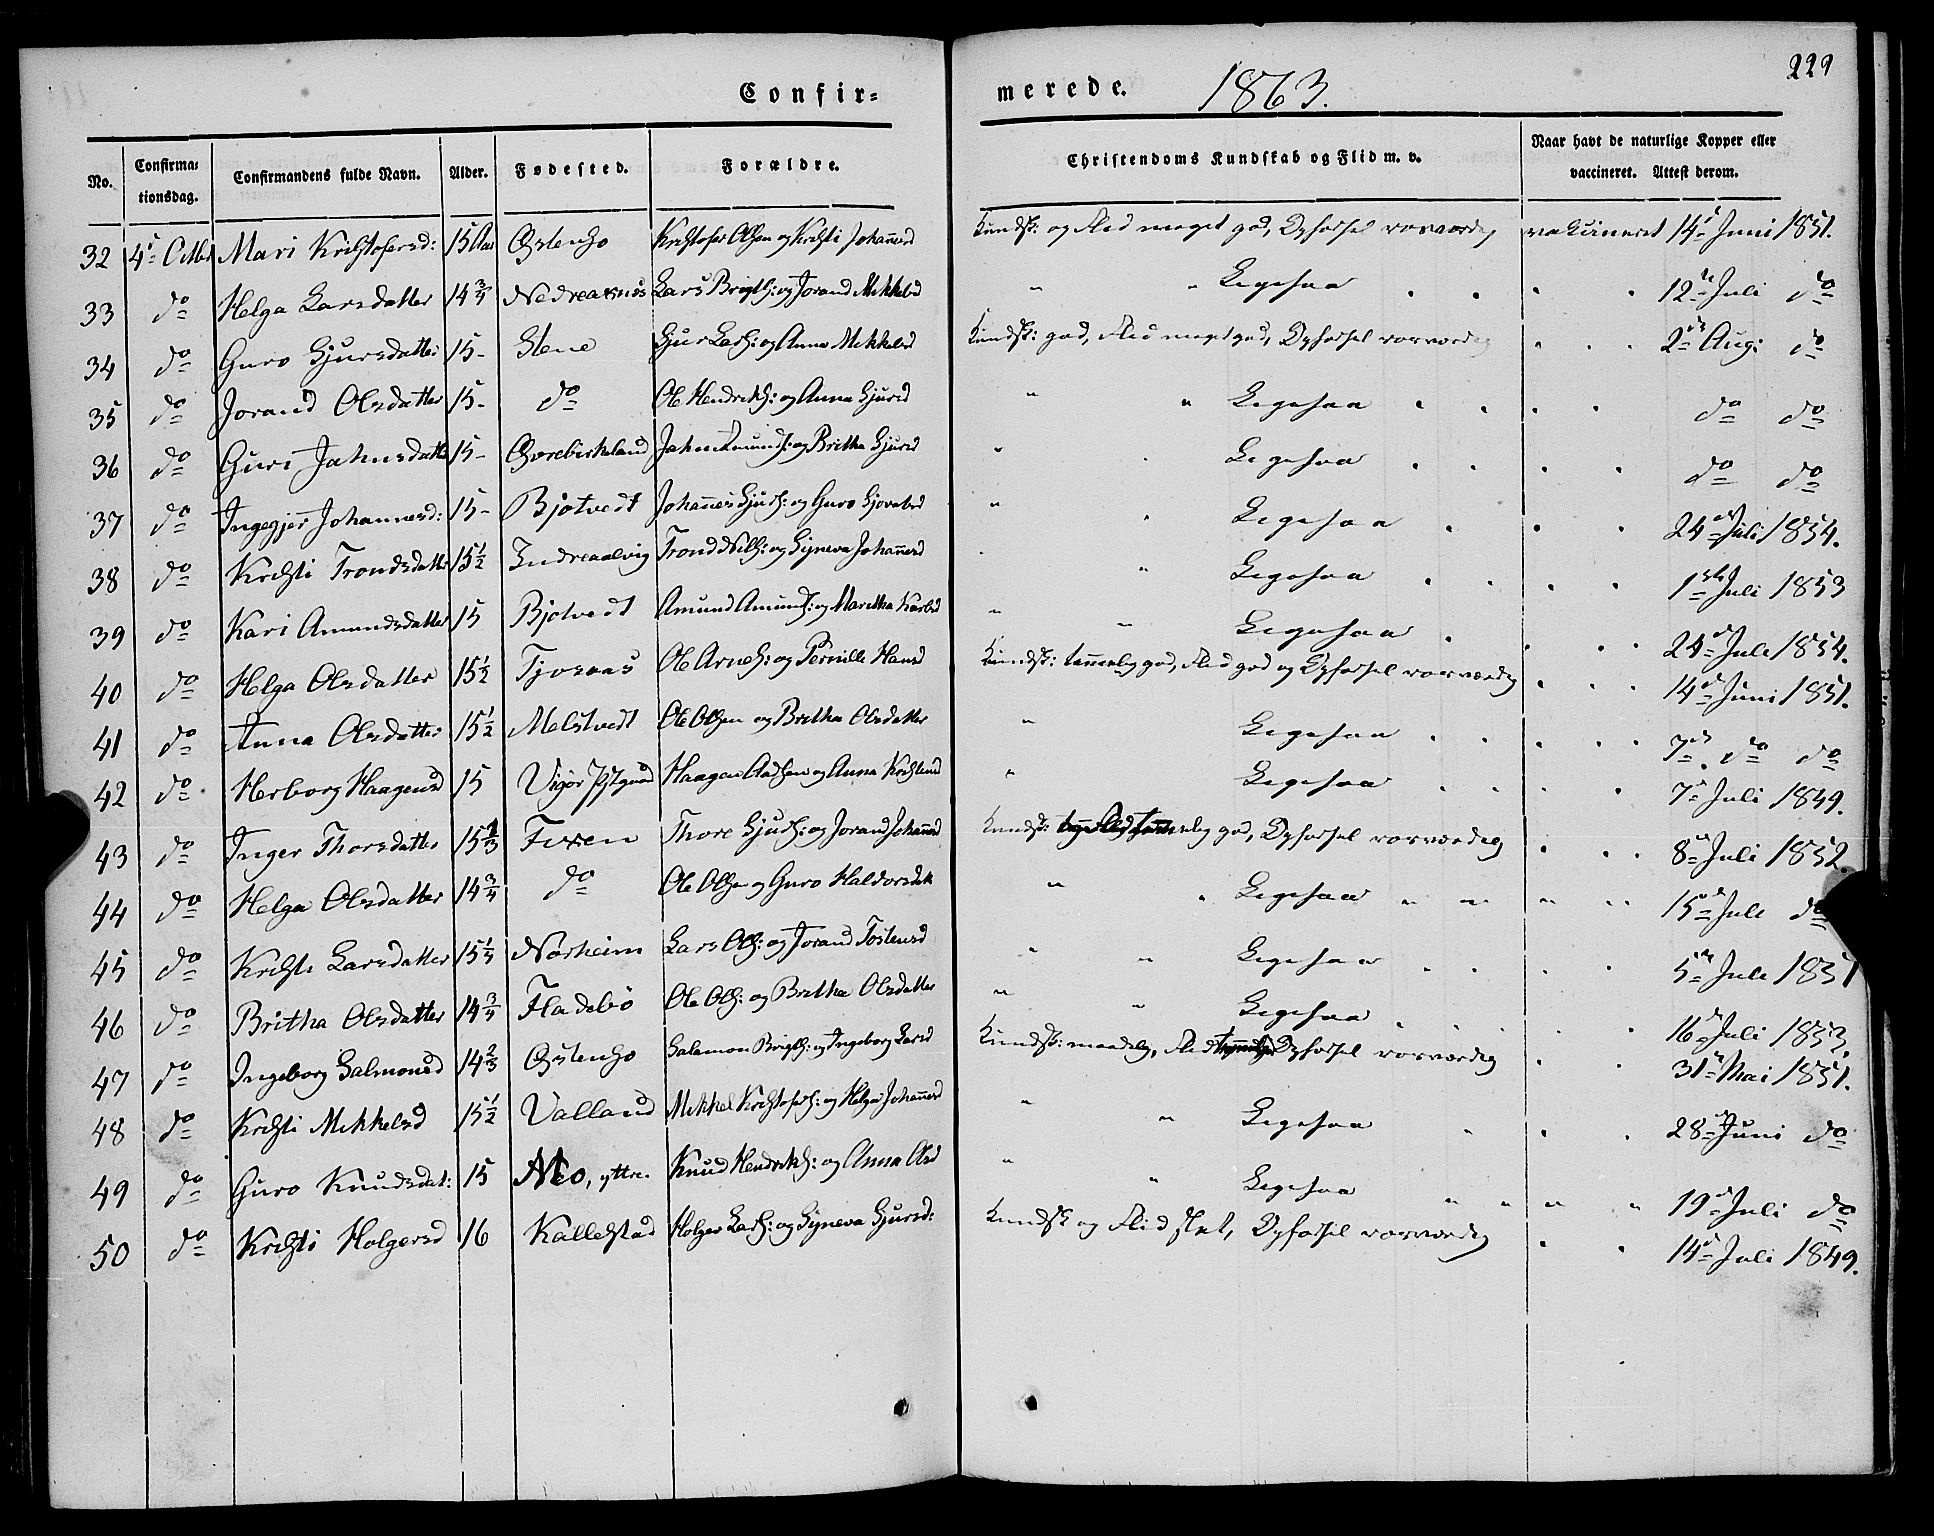 Confir=
merede. 1863. 222
No. Confirma=tionsdag. Confirmandens fulde Navn. Alder. Fødested. Forældre. Christendoms Kundskab og Flid m. v. Naar havt de naturlige Kopper eller vaccineret. Attest derom.
32 4de Octbr Mari Kristofersd: 15 Aar Østensø Kristofer Olsen og Kristi Johañesd Kundsk: og Flid meget god, Opførsel rosværdig vakcineret 14de Juni 1851.
33 do Helga Larsdatter 14 3/4 Nedreaxnes Lars Brigts: og Jorand Mikkelsd " " Ligesaa . . . . 12te Juli do
34 do Guro Gjursdatter 15- Stene Gjur Lars: og Anna Mikkelsd Kundsk: god, Flid meget god, Opførsel rosværdig . . . 2den Aug: do
35 do Jorand Olsdatter 15- do Ole Hendriks: og Anna Gjursd " " Ligesaa . . . . do do
36 do Guri Jahnsdatter 15- Øvrebirkeland Jahn Amunds: og Britha Gjursd " . Ligesaa . . . . do do
37 do Ingegjer Johannesd: 15- Bjotvedt Johañes Gjurs: og Guro Sjovatsd " " Ligesaa . . . 24de Juli 1854.
38 do Kristi Trondsdatter 15 1/2 Indreaalvig Trond Nils: og Syneva Johañesd . " Ligesaa . . . . 1ste Juli 1853
39 do Kari Amundsdatter 15 Bjotvedt Amund Amunds: og Maritha Larsd " " Ligesaa . . . . 24de Juli 1854.
40 do Helga Olsdatter 15 1/2 Tjosaas Ole Arnes: og Pernille Hansd Kundsk: temmelig god, Flid god og Opførsel rosværdig . . . 14de Juni 1851.
41 do Anna Olsdatter 15 1/2 Melstvedt Ole Olsen og Britha Olsdatter " Ligesaa . . . . . 7de do do
42 do Herborg Haagensd 15 Vigør Pstgjeld Haagen Aadsen og Anna Kristensd " Ligesaa . . . . 7de Juli 1849.
43 do Inger Thorsdatter 15 1/3 Fixen Thore Gjurs: og Jorand Johañesd Kundsk: og Flid temmelig god, Opførsel rosværdig . . . 8de Juli 1852.
44 do Helga Olsdatter 14 3/4 do Ole Olsen og Guro Haldorsdat " " Ligesaa " " " " 15de Juli do
45 do Kristi Larsdatter 15 1/4 Norheim Lars Ols: og Jorand Tostensd " " Ligesaa . . . . 5te Juli 1851
46 do Britha Olsdatter 14 3/4 Fladebø Ole Ols: og Britha Olsdatter " " Ligesaa . . . . 16de Juli 1853
47 do Ingeborg Salmonsd 14 2/3 Østensø Salamon Brigts: og Ingeborg Larsd Kundsk: maadelig, Flid Opførsel rosværdig . . 31te Mai 1851.
48 do Kristi Mikkelsd 15 1/2 Valland Mikkel Kristofers: og Helga Johañesd " " Ligesaa . . . 28de Juni do
49 do Guro Knudsdat: 15 Mo, yttre. Knud Hendriks: og Anna Olsd " " Ligesaa " " " " 19de Juli do
50 do Kristi Holgersd 16 Kallestad Holger Lars: og Synneva Gjursd: Kundsk og Flid slet, Opførsel rosværdig . . 14de Juli 1849.